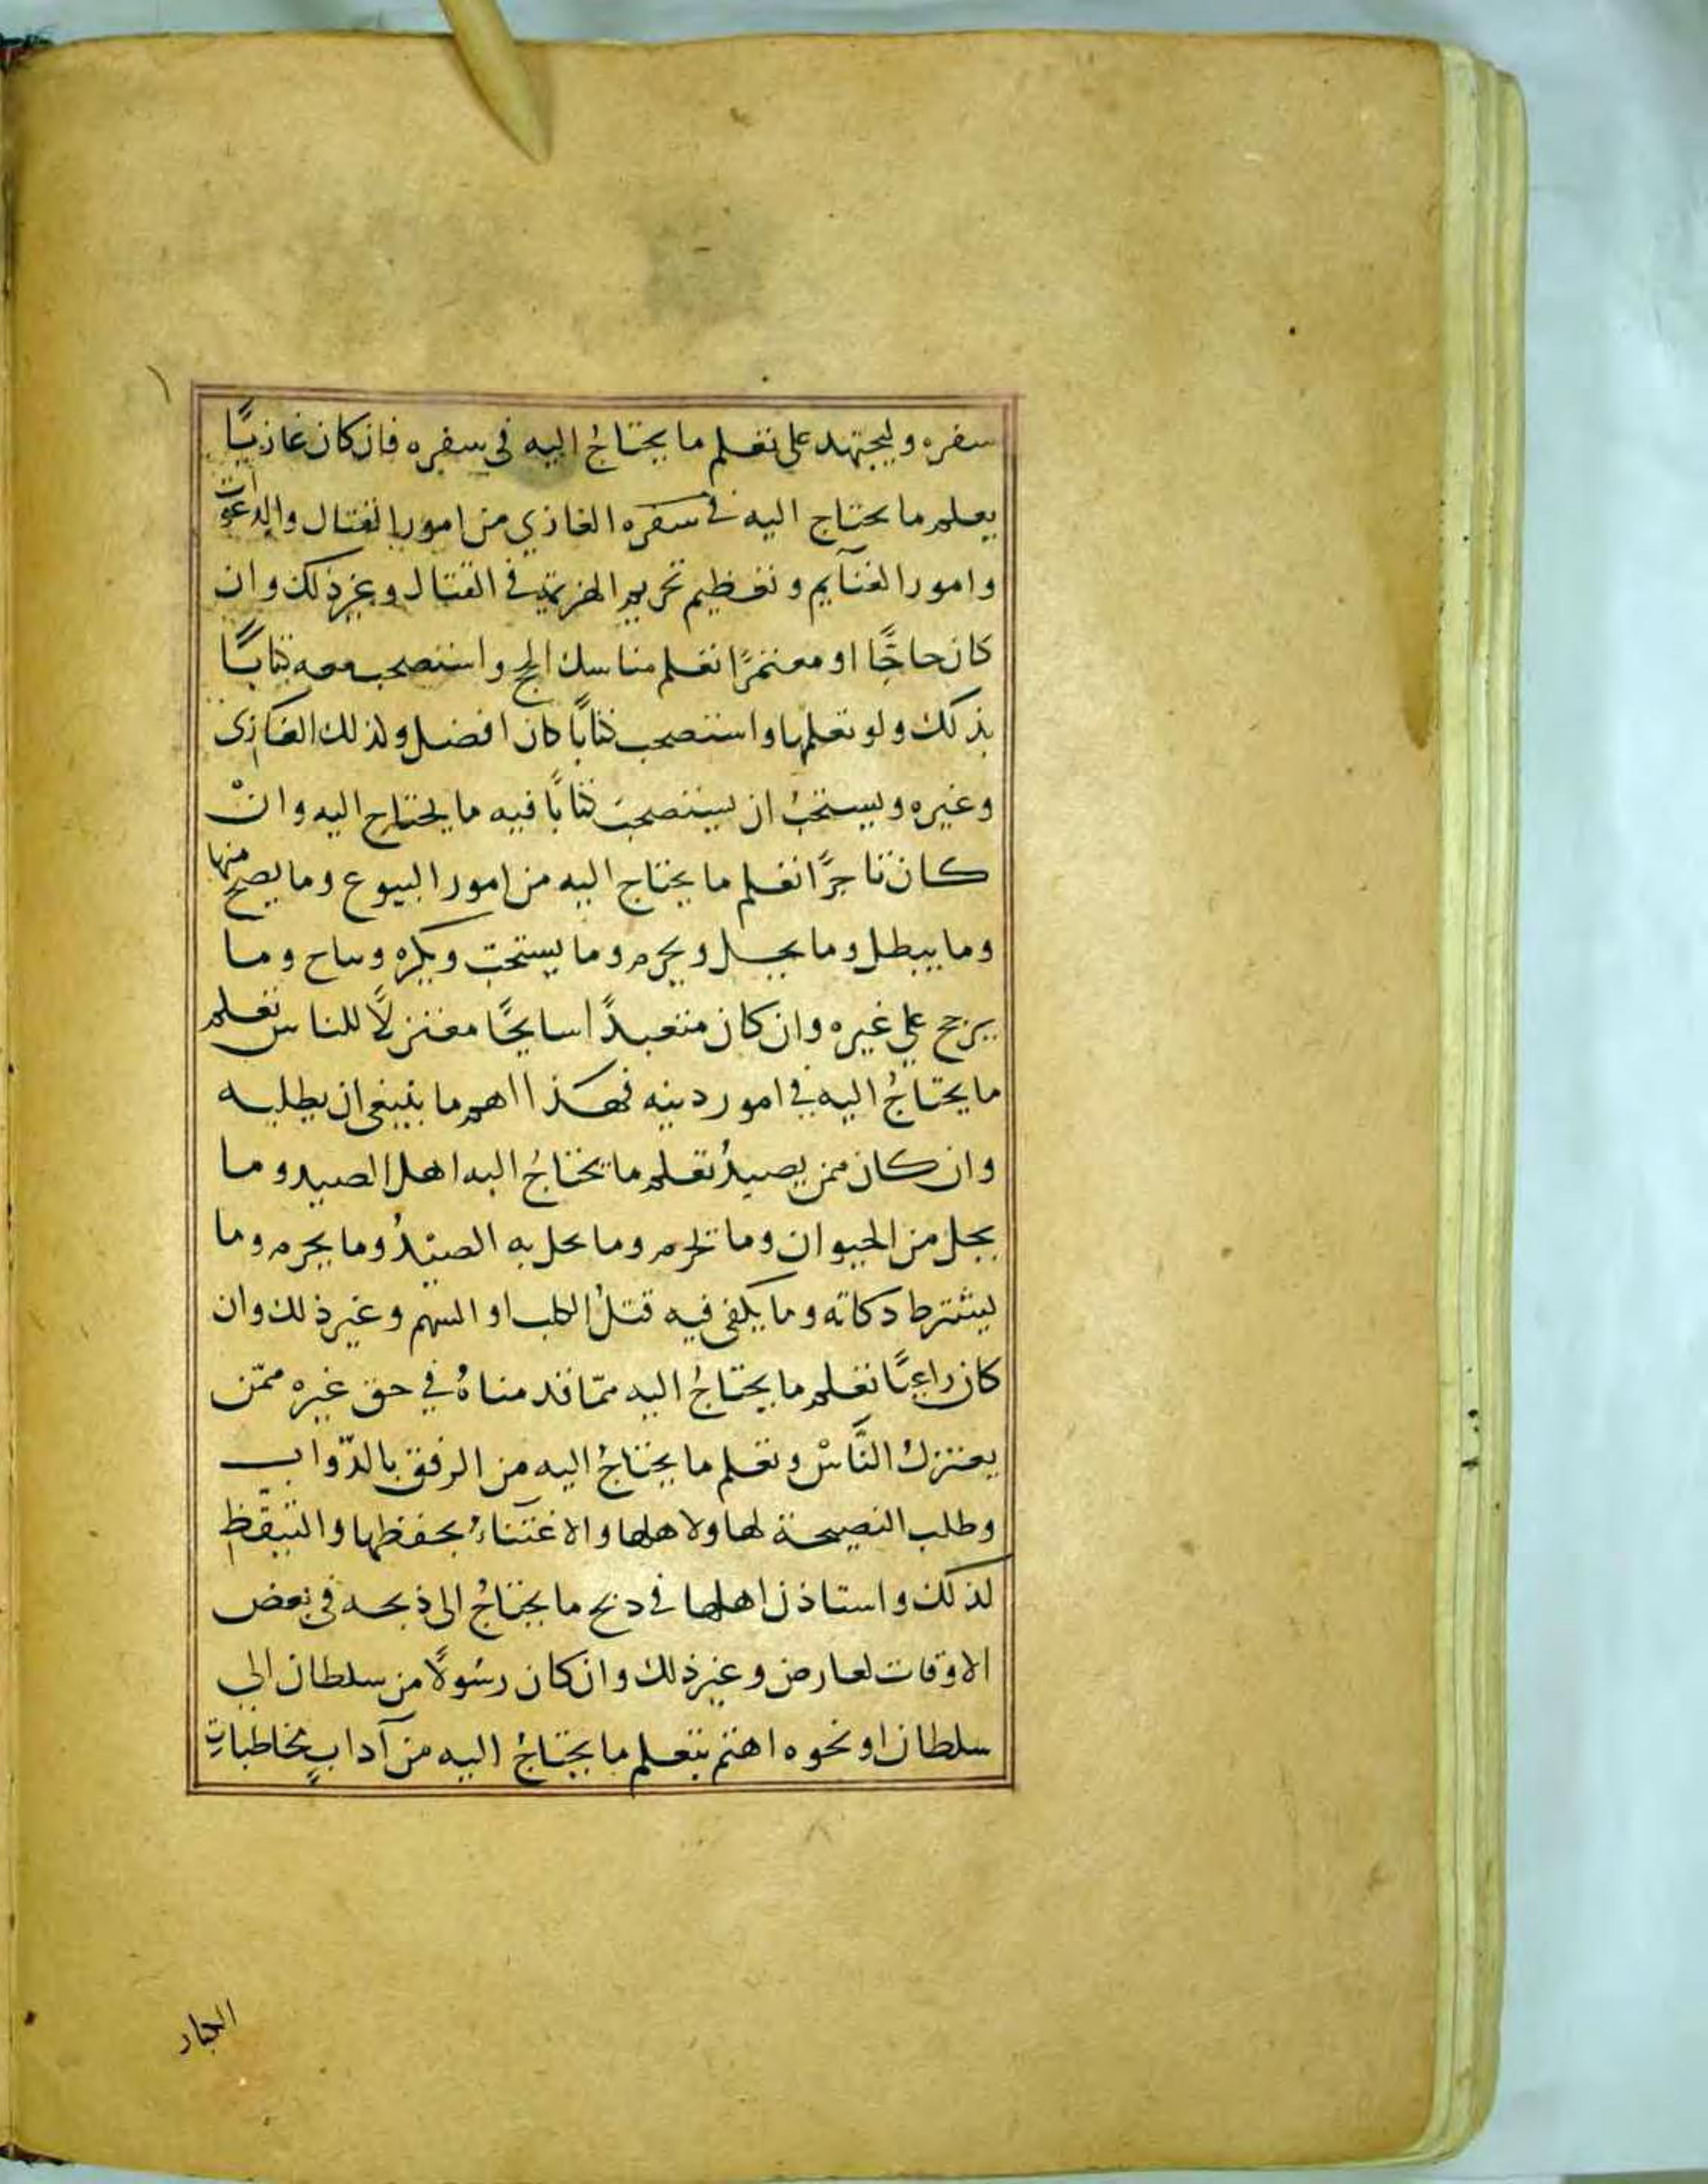 سفره وليجتهد على تعلم ما يحتاجُ اليه في سفره فان كان غازيًا
يعلم ما يحتاج اليه في سفره الغازي من امور القتال والدعوات
وامور الغنآيم وتعظيم تحريم الهزيمة في القتال وغير ذلك وان
كان حاجًّا او معتمرًا تعلم مناسك الحج واستصحب معه كتابًا
بذلك ولو تعلمها واستصحب كتابًا كان افضل ولذلك الغازى
وغيره ويستحبُ ان يستصحبَ كتابًا فيه ما يحتاج اليه وانْ
كان تاجرًا تعلم ما يحتاج اليه من امور البيوع وما يصح منها
وما يبطل وما يحل ويحرم وما يستحبّ ويكره ويباح وما
يرجح على غيره وان كان متعبدًا سايحًا معتزلًا للناس تعلم
ما يحتاجُ اليه في امور دينه فهذا اهم ما ينبغي ان يطلبه
وان كان ممن يصيدُ تعلم ما يحتاجُ اليه اهل الصيد وما
يحل من الحيوان وما تحرم وما يحل به الصيْدُ وما يحرم وما
يشترط دكاته وما يكفى فيه قتلُ الكلب او السهم وغير ذلك وان
كان راعيًا تعلم ما يحتاجُ اليه ممّا قدمناهُ في حق غيره ممّن
يعتزلُ النَّاسْ وتعلم ما يحتاجُ اليه من الرفق بالدّواب
وطلب النصيحة لها ولاهلها والاعتناءُ بحفظها والتيقّظ
لذلك واستاذن اهلها في ذبح ما يحتاجُ الى ذبحه في بعض
الاوقات لعارض وغير ذلك وان كان رسُولًا من سلطان الي
سلطان او نحوه اهتم بتعلم ما يحتاجُ اليه من آدابٍ مخاطباتِ